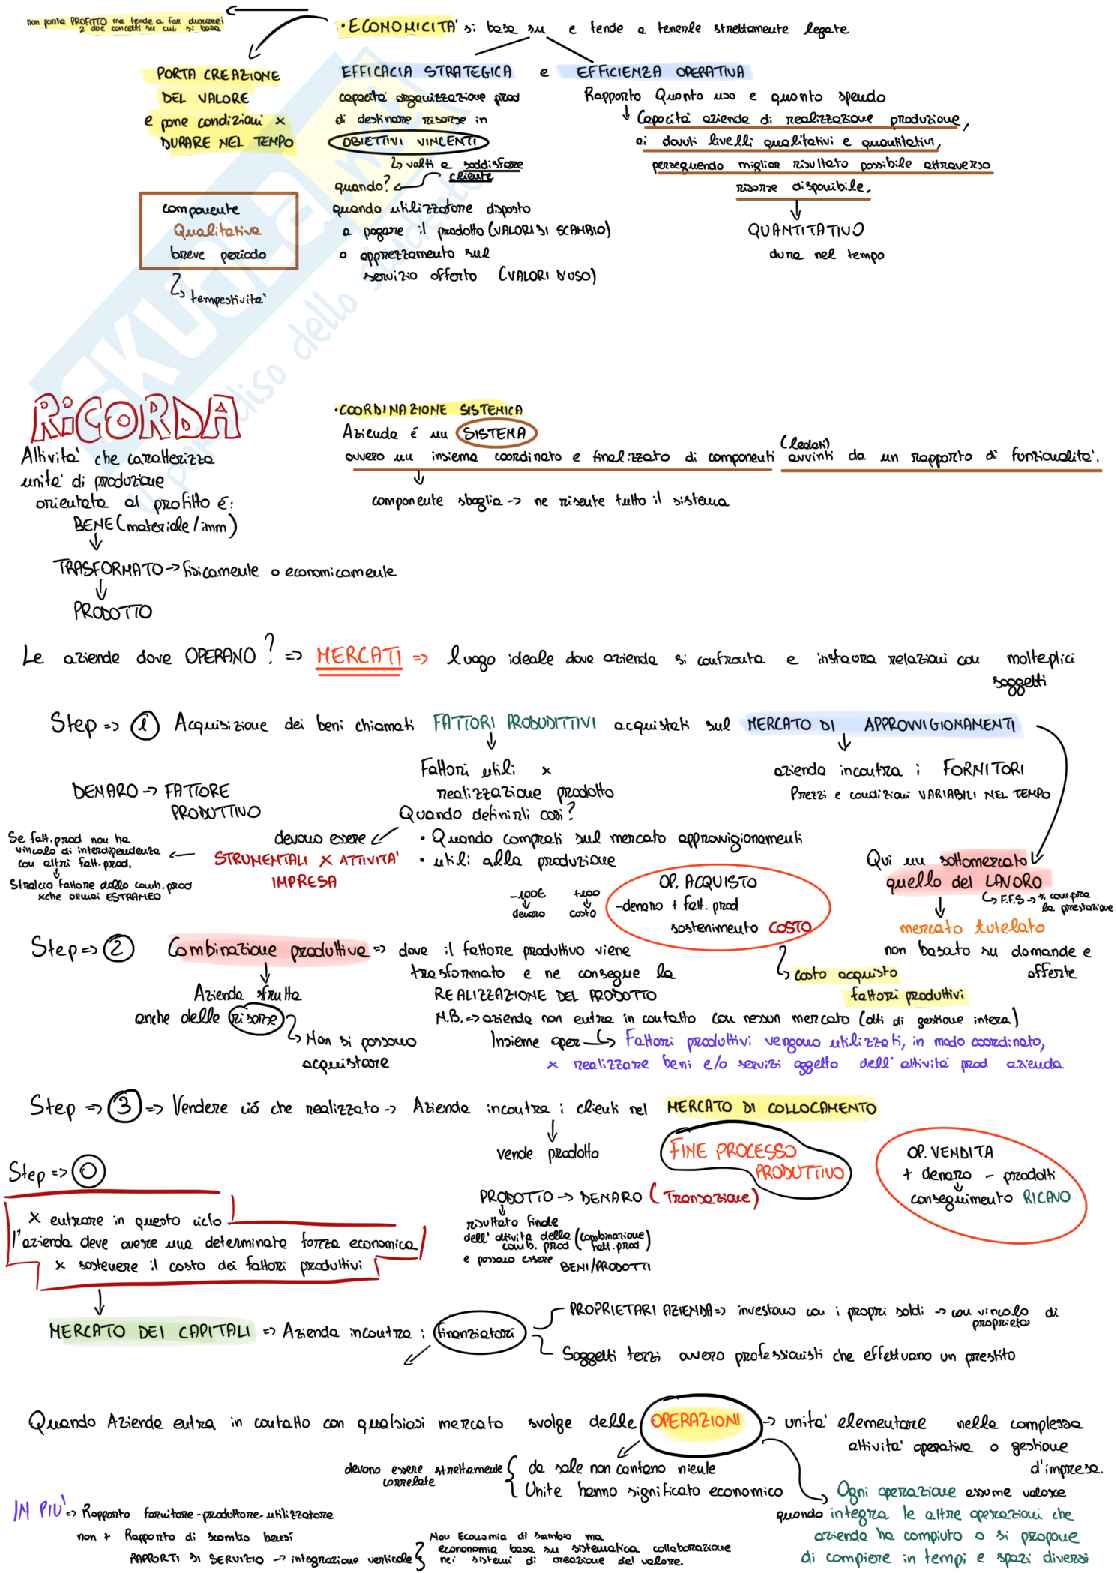 non porta PROFITTO ma tende a far durare i
2 due concetti su cui si basa
• ECONOMICITA' si basa su e tende a tenerle strettamente legate
PORTA CREAZIONE
DEL VALORE
e pone condizioni x
DURARE NEL TEMPO
EFFICACIA STRATEGICA e EFFICIENZA OPERATIVA
capacità organizzazione prod
di destinare risorse in
OBIETTIVI VINCENTI
↳ volti a soddisfare
cliente
quando?
quando utilizzatore disposto
a pagare il prodotto (VALORI DI SCAMBIO)
o apprezzamento sul
servizio offerto (VALORI D'USO)
Rapporto Quanto uso e quanto spendo
↓ Capacità aziende di realizzazione produzione,
ai dovuti livelli qualitativi e quantitativi,
perseguendo miglior risultato possibile attraverso
risorse disponibile.
↓
QUANTITATIVO
dura nel tempo
componente
Qualitativa
breve periodo
↳ tempestivita'
SKUOLA.net
il paradiso dello studente
RICORDA
Attivita' che caratterizza
unita' di produzione
orientata al profitto é:
BENE (materiale/imm)
↓
TRASFORMATO -> fisicamente o economicamente
↓
PRODOTTO
• COORDINAZIONE SISTEMICA
Azienda é un SISTEMA
ovvero un insieme coordinato e finalizzato di componenti (legati) avvinti da un rapporto di funzionalita'.
↓
componente sbaglia -> ne risente tutto il sistema
Le aziende dove OPERANO? => MERCATI => luogo ideale dove azienda si confronta e instaura relazioni con molteplici
soggetti
Step => 1 Acquisizione dei beni chiamati FATTORI PRODUTTIVI acquistati sul MERCATO DI APPROVVIGIONAMENTI
DENARO -> FATTORE
PRODUTTIVO
Fattori utili x
realizzazione prodotto
Quando definirli così?
• Quando comprati sul mercato approvvigionamenti
• utili alla produzione
azienda incontra i FORNITORI
Prezzi e condizioni VARIABILI NEL TEMPO
devono essere
STRUMENTALI X ATTIVITA'
IMPRESA
Se fatt.prod non ha
vincolo di interdipendenza
con altri fatt.prod.
↓
Stralcio fattore dalla comb.prod
xche ormai ESTRANEO
-100€ +100
↓ ↓
denaro costo
OP. ACQUISTO
-denaro + fatt. prod
sostenimento COSTO
↳ costo acquisto
fattori produttivi
Qui un sottomercato
quello del LAVORO
↳ F.F.S -> si compra
la prestazione
mercato tutelato
non basato su domanda e
offerta
Step => 2 Combinazione produttiva => dove il fattore produttivo viene
trasformato e ne consegue la
REALIZZAZIONE DEL PRODOTTO
Azienda sfrutta
anche delle risorse
↳ Non si possono
acquistare
N.B. => azienda non entra in contatto con nessun mercato (atti di gestione interna)
Insieme oper ↳ Fattori produttivi vengono utilizzati, in modo coordinato,
x realizzare beni e/o servizi oggetto dell'attivitá prod azienda
Step => 3 => Vendere ciò che realizzato -> Azienda incontra i clienti nel MERCATO DI COLLOCAMENTO
↓
vende prodotto
FINE PROCESSO
PRODUTTIVO
OP. VENDITA
+ denaro - prodotti
↓
conseguimento RICAVO
PRODOTTO -> DENARO (Transazione)
↓
risultato finale
dell'attivita della (combinazione)
comb.prod fatt.prod)
e possono essere
BENI/PRODOTTI
Step => 0
x entrare in questo ciclo
l'azienda deve avere una determinata forza economica
x sostenere il costo dei fattori produttivi
↓
MERCATO DEI CAPITALI => Azienda incontra i finanziatori
PROPRIETARI AZIENDA => investono con i propri soldi -> con vincolo di
proprietà
Soggetti terzi ovvero professionisti che effettuano un prestito
Quando Azienda entra in contatto con qualsiasi mercato svolge delle OPERAZIONI -> unita' elementare nella complessa
attivita' operativa o gestione
d'impresa.
devono essere strettamente
correlate
da sole non contano niente
Unite hanno significato economico
Ogni operazione assume valore
quando integra le altre operazioni che
azienda ha compiuto o si propone
di compiere in tempi e spazi diversi
IN PIU' => Rapporto fornitore-produttore-utilizzatore
non + Rapporto di scambio bensì
RAPPORTI DI SERVIZIO -> integrazione verticale
Non Economia di scambio ma
econonomia basa su sistematica collaborazione
nei sistemi di creazione del valore.